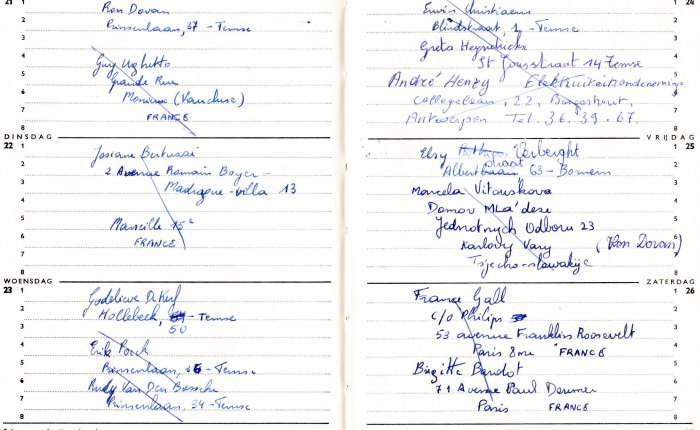 21
Ron Dovan
Prinsenlaan, 37 - Temse
Guy Ughetto
Grande Rue
(Vaucluse)
FRANCE
DINSDAG
22
Josiane Bertussi
2 Avenue Romain Boyer -
Madrague - villa 13
Marseille 15e
FRANCE
WOENSDAG
23
Godelieve De Kerf
Hollebeek, - Temse
50
Erik Pock
Prinsenlaan, - Temse
Rudy Van Den Bossche
Prinsenlaan, 34 - Temse
24
Erwin Christiaens
Blindstraat, 1 - Temse
Greta Heyndrickx
St Jorisstraat 14 Temse
André Henzy Elektriciteitsonderneming
Collegelaan, 22, Borgerhout,
Antwerpen Tel. 36.39.67.
VRIJDAG
25
Elsy Verberght
straat
Albert 63 - Bornem
Marcela Vitouskova
Domov Mládeze
Jednotnych Odboru 23
Karlovy Vary (Ron Dovan)
Tsjecho-slowakije
ZATERDAG
26
France Gall
c/o Philips
53 avenue Franklin Roosevelt
Paris 8me FRANCE
Brigitte Bardot
71 Avenue Paul Doumer
Paris FRANCE